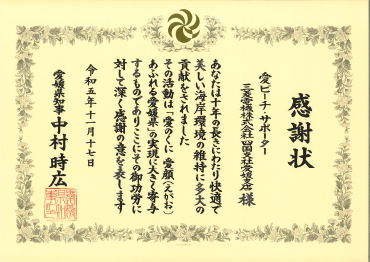 感謝状
愛ビーチ・サポーター
三菱電機株式会社四国支社愛媛支店 様
あなたは十年の長きにわたり快適で
美しい海岸環境の維持に多大の
貢献をされました
その活動は「愛のくに 愛顔(えがお)
あふれる愛媛県」の実現に大きく寄与
するものでありここにその御功労に
対して深く感謝の意を表します
令和五年十一月十七日
愛媛県知事 中村時広